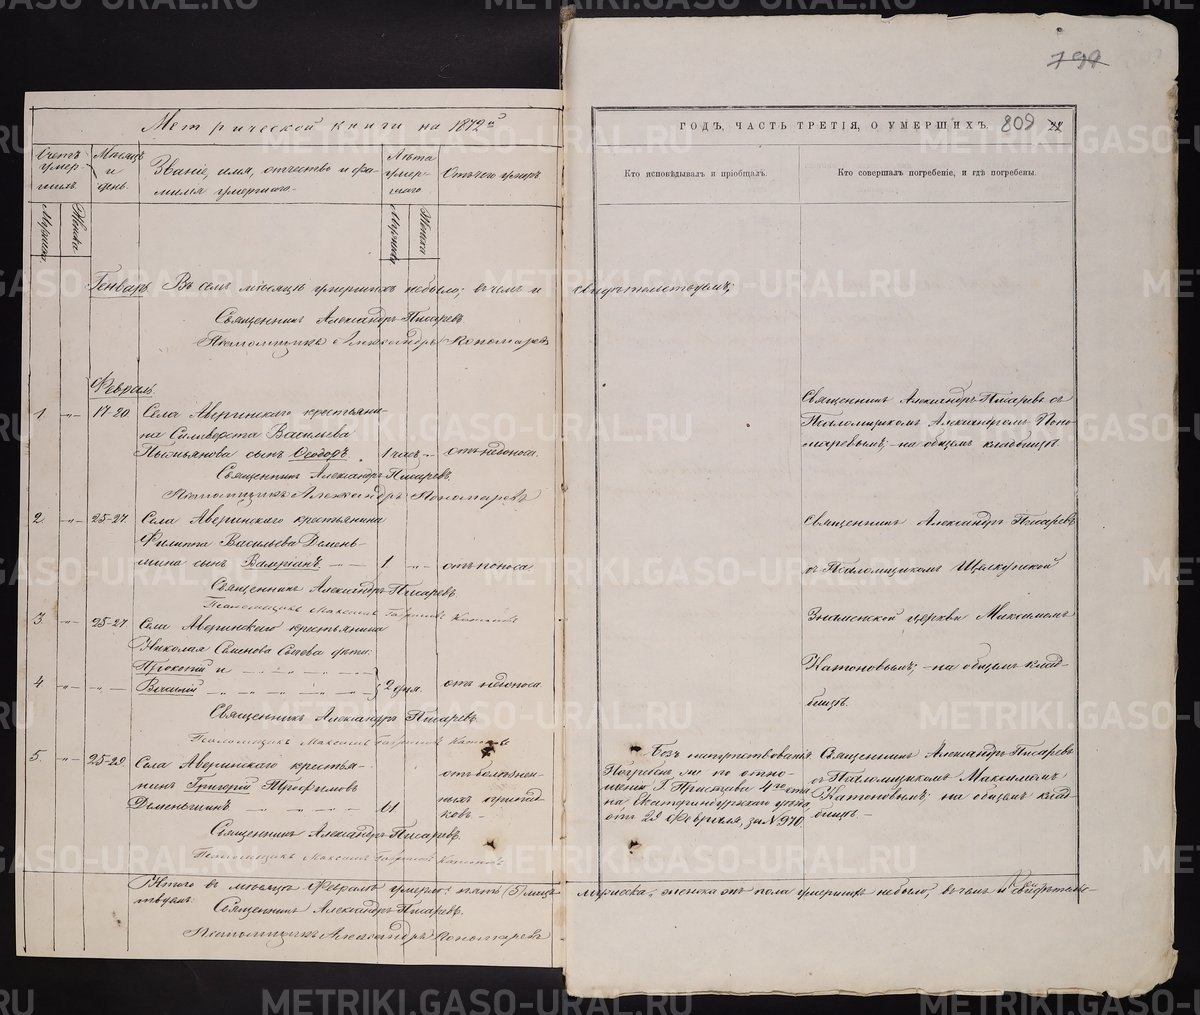 798
Метрической книги на 1872й
ГОДЪ, ЧАСТЬ ТРЕТІЯ, О УМЕРШИХЪ. 809
Счетъ умер-
шихъ.
Мѣсяцъ
и
день.
Званіе, имя, отчество и фа-
милія умершаго.
Лѣта
умер-
шаго.
Отъ чего умеръ
Кто исповѣдывалъ и пріобщалъ.
Кто совершалъ погребеніе, и гдѣ погребены.
Мужска
Женска
Мужска
Женска
Генварь Въ семъ мѣсяцѣ умершихъ небыло; въ чемъ и свидѣтельствуемъ;
Священникъ Александръ Писаревъ
Псаломщикъ Александръ Пономаревъ
Февраль
1. -"- 17-20 Села Аверинскаго крестьяни-
на Сильверста Васильева
сынъ Ѳеодоръ. 1 часъ - отъ недоноса.
Священникъ Александръ Писаревъ.
Псаломщикъ Александръ Пономаревъ
Священникъ Александръ Писаревъ съ
Псаломщикомъ Александромъ Поно-
маревымъ; на общемъ кладбищѣ.
2. -"- 25-27. Села Аверинскаго крестьянина
Филиппа Васильева Демень-
шина сынъ 1 -"- отъ поноса
Священникъ Александръ Писаревъ.
Псаломщикъ Максимъ Катоновъ
Священникъ Александръ Писаревъ
съ Псаломщикомъ Щелкунской
Знаменской церкви Максимомъ
Катоновымъ; на общемъ клад-
бищѣ.
3. -"- 25-27. Села Аверинскаго крестьянина
Николая Семенова Сысева дѣти:
Прокопій и
4 -"- -"- Василій 2 дня. отъ недоноса
Священникъ Александръ Писаревъ.
Псаломщикъ Максимъ Катоновъ
5. -"- 25-29. Села Аверинскаго крестья-
нинъ Григорій Трофимовъ
Деменьшинъ 61
Священникъ Александръ Писаревъ.
Псаломщикъ Максимъ Катоновъ
отъ болѣзнен-
ныхъ припад-
ковъ.-
Безъ напутствованія
Погребенъ же по отно-
шенію Г. Пристава 4го ста
на Екатеринбургскаго уѣзда,
отъ 29 Февраля, за №970.
Священникъ Александръ Писаревъ
съ Псаломщикомъ Максимомъ
Катоновымъ; на общемъ клад-
бищѣ.-
Итого въ мѣсяцѣ Февралѣ умерло: пять (5) мужеска, женска же пола умершихъ небыло; въ чемъ и свидѣтель-
ствуемъ:
Священникъ Александръ Писаревъ.
Псаломщикъ Александръ Пономаревъ
METRIKI.GASO-URAL.RU